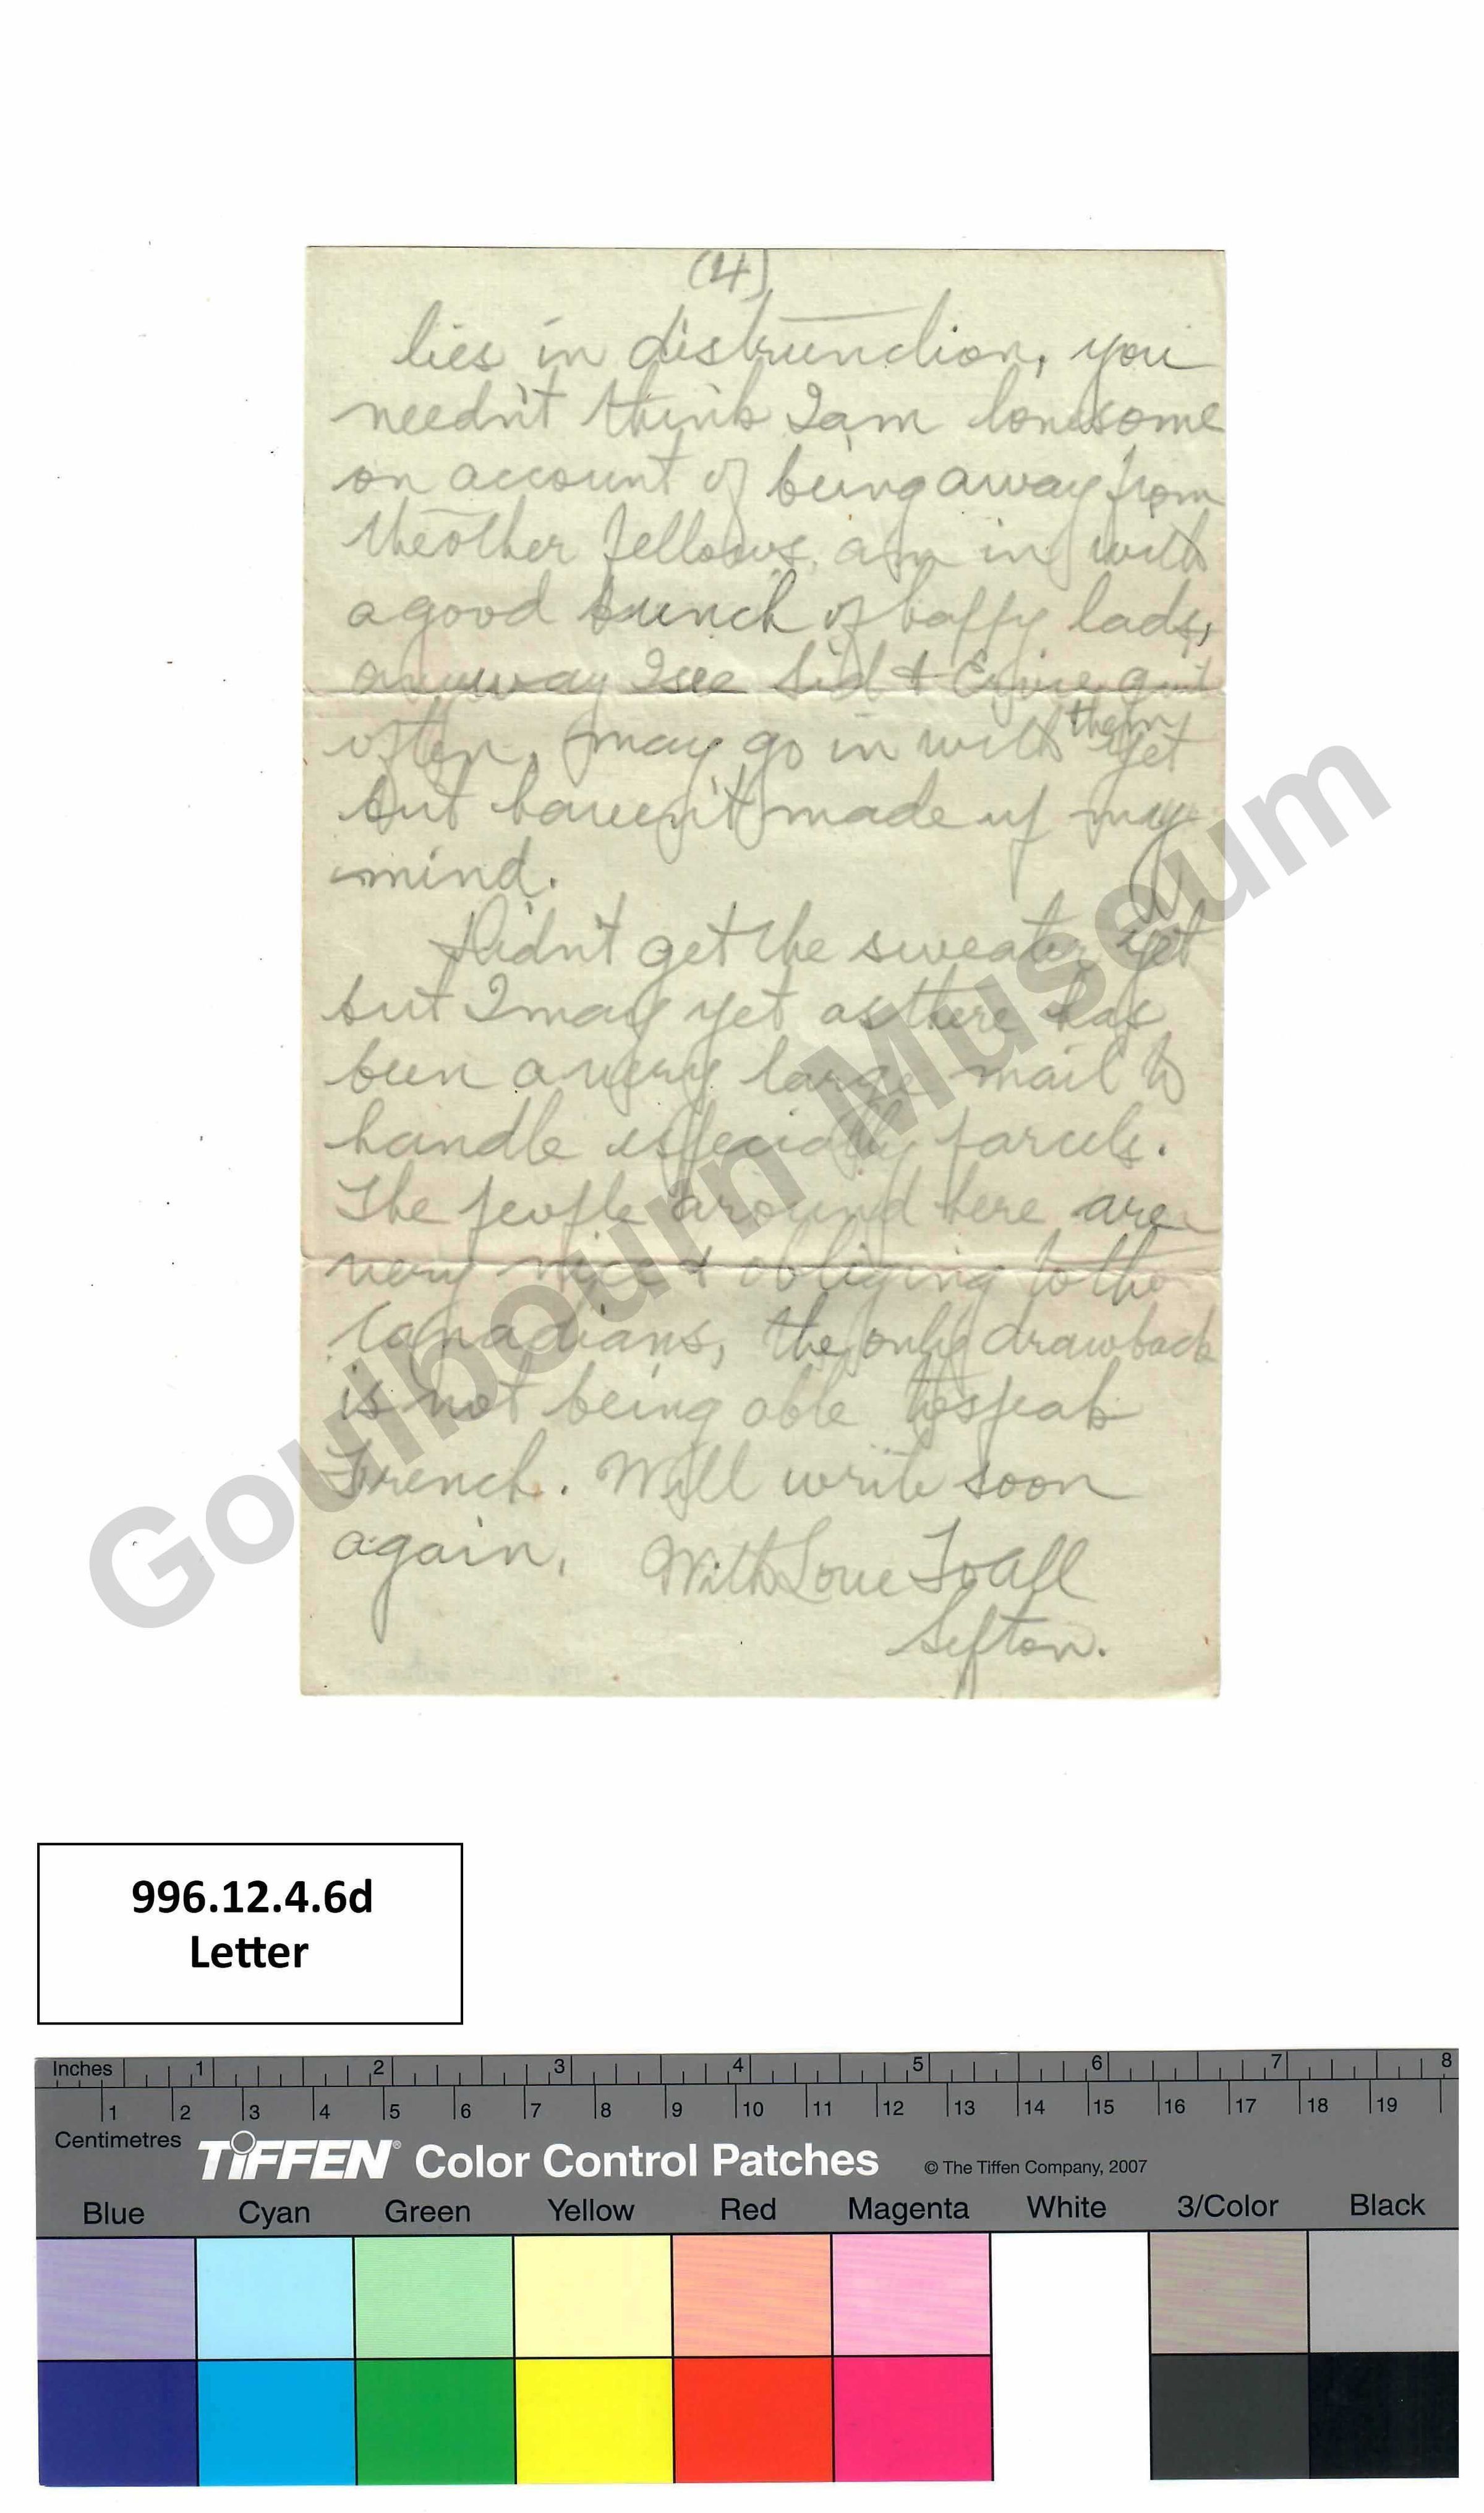 (4)
lies in distrundion, you
needn't think I am lonesome
on account of being away from
the other fellows, am in with
a good bunch of happy lads,
anyway I see Sid & Ervie quit
often, may go in with them yet
but haven't made up my
mind.
Didn't get the sweater yet
but I may yet as there has
been a very large mail to
handle especially parcels.
The people around here are
very nice & obliging to the
Canadians, the only drawback
is not being able to speak
French. Will write soon
again. With Love To all
Sefton.
Goulbourn Museum
996.12.4.6d
Letter
Inches 1 2 3 4 5 6 7 8
1 2 3 4 5 6 7 8 9 10 11 12 13 14 15 16 17 18 19
Centimetres
TIFFEN® Color Control Patches © The Tiffen Company, 2007
Blue Cyan Green Yellow Red Magenta White 3/Color Black